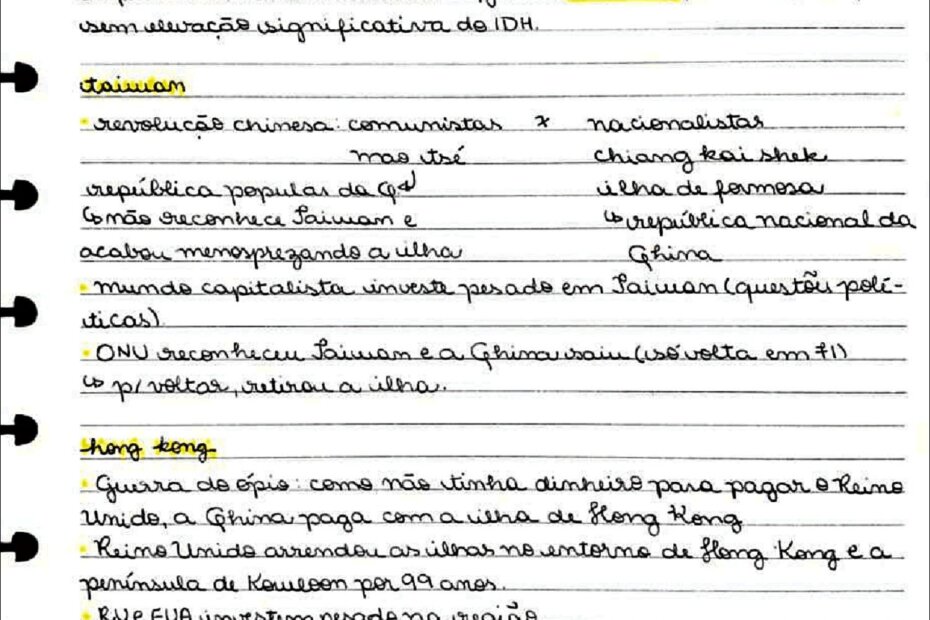 sem elevação significativa do IDH.
taiwan
• revolução chinesa: comunistas x nacionalistas
mao tsé chiang kai shek
república popular da Ch↲ ilha de formosa
↳ não reconhece Taiwan e ↳ república nacional da
acabou menosprezando a ilha China
• mundo capitalista investe pesado em Taiwan (questões polí-
ticas)
• ONU reconheceu Taiwan e a China saiu (só volta em 71)
↳ p/ voltar, retirou a ilha.
hong kong
• Guerra do ópio: como não tinha dinheiro para pagar o Reino
Unido, a China paga com a ilha de Hong Kong
• Reino Unido arrendou as ilhas no entorno de Hong Kong e a
península de Kowloon por 99 anos.
• RU e EUA investem pesado na região